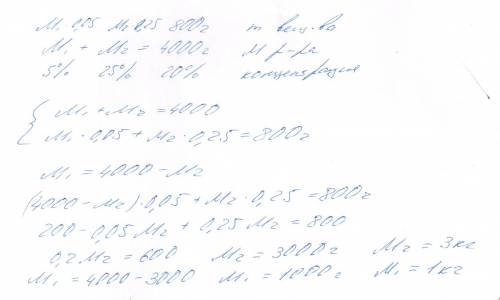 M₁·0,05 M₂ 0,25 800г m вещ-ва
M₁ + M₂ = 4000г M р-ра
5% 25% 20% концентрация
{ M₁ + M₂ = 4000
M₁·0,05 + M₂·0,25 = 800г
M₁ = 4000 - M₂
(4000 - M₂)·0,05 + M₂·0,25 = 800г
200 - 0,05M₂ + 0,25M₂ = 800
0,2M₂ = 600 M₂ = 3000г M₂ = 3кг
M₁ = 4000 - 3000 M₁ = 1000г M₁ = 1кг